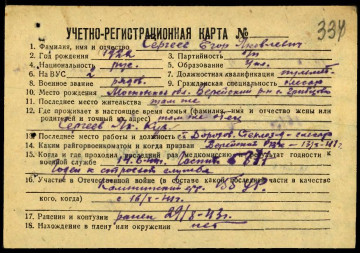 334
УЧЕТНО-РЕГИСТРАЦИОННАЯ КАРТА №
1. Фамилия, имя и отчество Сергеев Егор Яковлевич
2. Год рождения 1922 3. Партийность б/п
4. Национальность рус. 5. Образование 4 кл.
6. На ВУС 2 7. Должностная квалификация
8. Военное звание рядов. 9. Гражданская специальность слесарь
10. Место рождения Московская обл. Верейский р-н
11. Последнее место жительства там же
12. Где проживает в настоящее время семья (фамилия, имя и отчество жены или
родителей и точный адрес) там же отец
Сергеев Як.
13. Последнее место работы и должность слесарь
14. Каким райгорвоенкоматом и когда призван Верейский РВК
15. Когда и где проходил последний раз медкомиссию результат годности к
военной службе
Годен к строевой службе
16. Участие в Отечественной войне (в составе какой последней части и в качестве
кого, когда)
17. Ранения и контузии ранен 29/8-43г.
18. Нахождение в плену или окружении нет